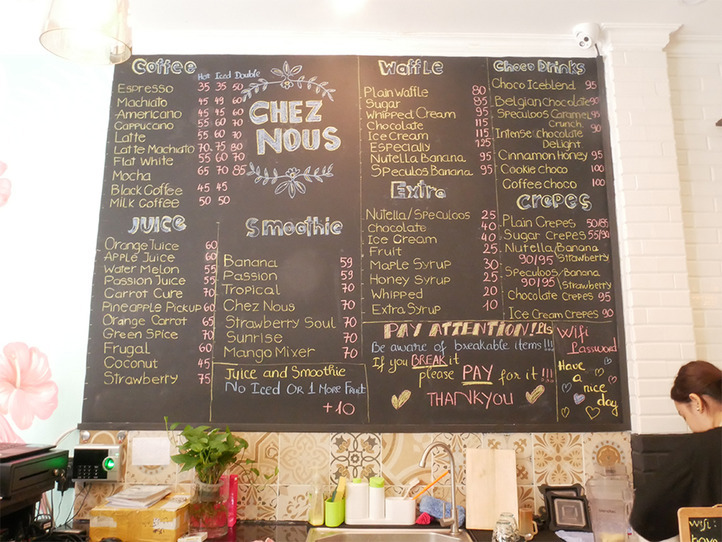 Coffee
Hot Iced Double
Espresso 35 35 50
Machiato 45 49 60
Americano 45 45 60
Cappucano 55 60 70
Latte 55 60 70
Latte Machiato 70 75 80
Flat White 55 60 70
Mocha 65 70 85
Black Coffee 45 45
Milk Coffee 50 50
CHEZ
NOUS
Juice
Orange Juice 60
Apple Juice 60
Water Melon 55
Passion Juice 55
Carrot Cure 70
Pineapple Pickup 60
Orange Carrot 65
Green Spice 70
Frugal 60
Coconut 45
Strawberry 75
Smoothie
Banana 59
Passion 59
Tropical 70
Chez Nous 70
Strawberry Soul 70
Sunrise 70
Mango Mixer 70
Juice and Smoothie
No Iced Or 1 More Fruit
+10
Waffle
Plain Waffle 80
Sugar 85
Whipped Cream 95
Chocolate 115
Ice Cream 115
Especially 125
Nutella Banana 95
Speculos Banana 95
Extra
Nutella/Speculoos 25
Chocolate 40
Ice Cream 40
Fruit 25
Maple Syrup 30
Honey Syrup 25
Whipped 20
Extra Syrup 10
Choco Drinks
Choco Iceblend 95
Belgian Chocolate 90
Speculoos Caramel 95
Crunch
Intense Chocolate 90
Delight
Cinnamon Honey 95
Cookie Choco 100
Coffee Choco 100
Crepes
Plain Crepes 50/85
Sugar Crepes 55/90
Nutella/Banana
90/95 \Strawberry
Speculoos/Banana
90/95 \Strawberry
Chocolate Crepes 95
Ice Cream Crepes 90
PAY ATTENTION!Pls
Be aware of breakable items!!!
If you BREAK it
please PAY for it!!!
THANKYOU
Wifi
Password
Have
a nice
day
Wifi: